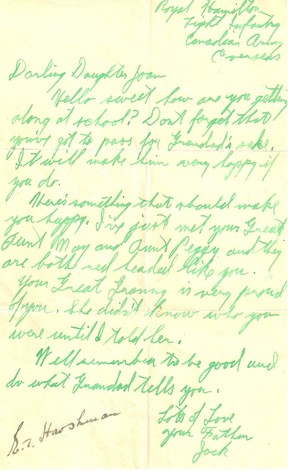 Royal Hamilton
Light Infantry
Canadian Army
Overseas
Darling Daughter Joan
Hello sweet how are you getting
along at school? Dont forget that
you've got to pass for Grandad's sake.
It will make him very happy if
you do.
Here's something that should make
you happy. I've just met your Great
Aunt May and Aunt Peggy and they
are both red headed like you.
Your Great Granny is very proud
of you. She didn't know who you
were until I told her.
Well remember to be good and
do what Grandad tells you.
Lots of Love
your Father
Jack
E.A. Harshman